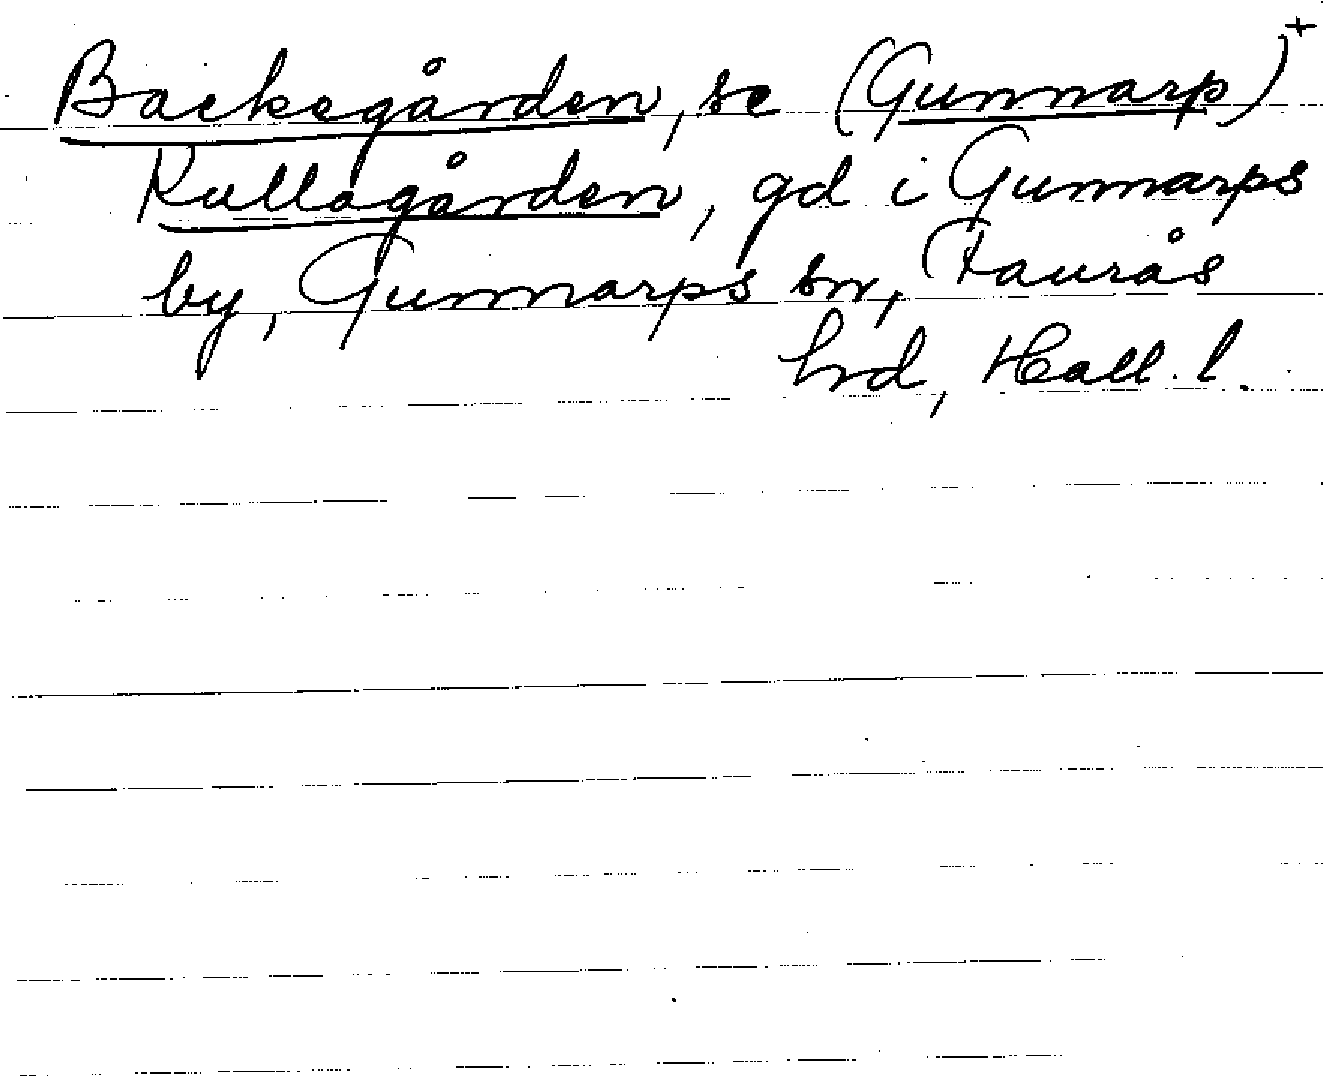 Backegården, se (Gunnarp)+
Kullagården, gd i Gunnarps
by, Gunnarps sn, Faurås
hrd, Hall. l.